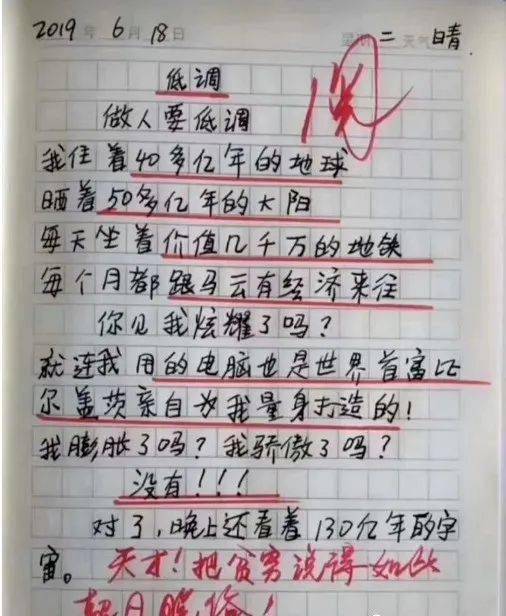 2019年6月18日 星期二 天气晴
低调
做人要低调
我住着40多亿年的地球
晒着50多亿年的太阳
每天坐着价值几千万的地铁
每个月都跟马云有经济来往
你见我炫耀了吗？
就连我用的电脑也是世界首富比
尔盖茨亲自为我量身打造的！
我膨胀了吗？我骄傲了吗？
没有！！！
对了，晚上还看着130亿年的宇
宙。天才！把贫穷说得如此